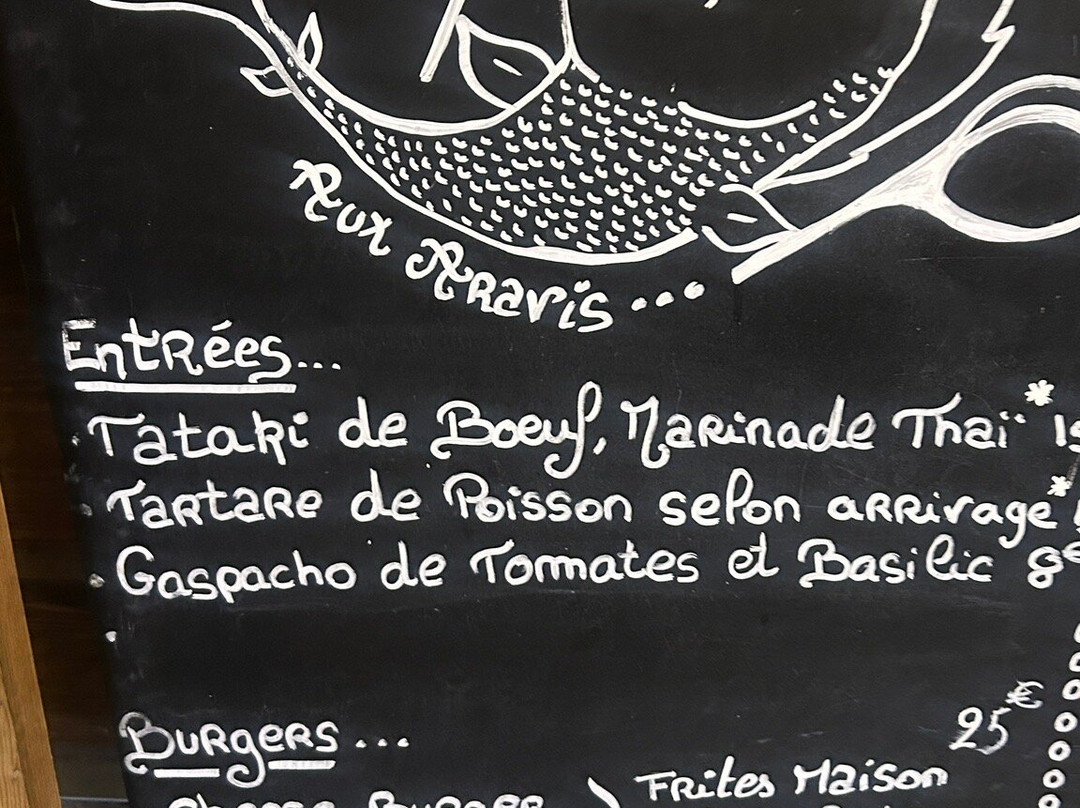 Aux Aravis...
Entrées...
Tataki de Boeuf, Marinade Thaï *
Tartare de Poisson selon arrivage *
Gaspacho de Tomates et Basilic 8€
Burgers... 25€
Cheese Burger Frites Maison